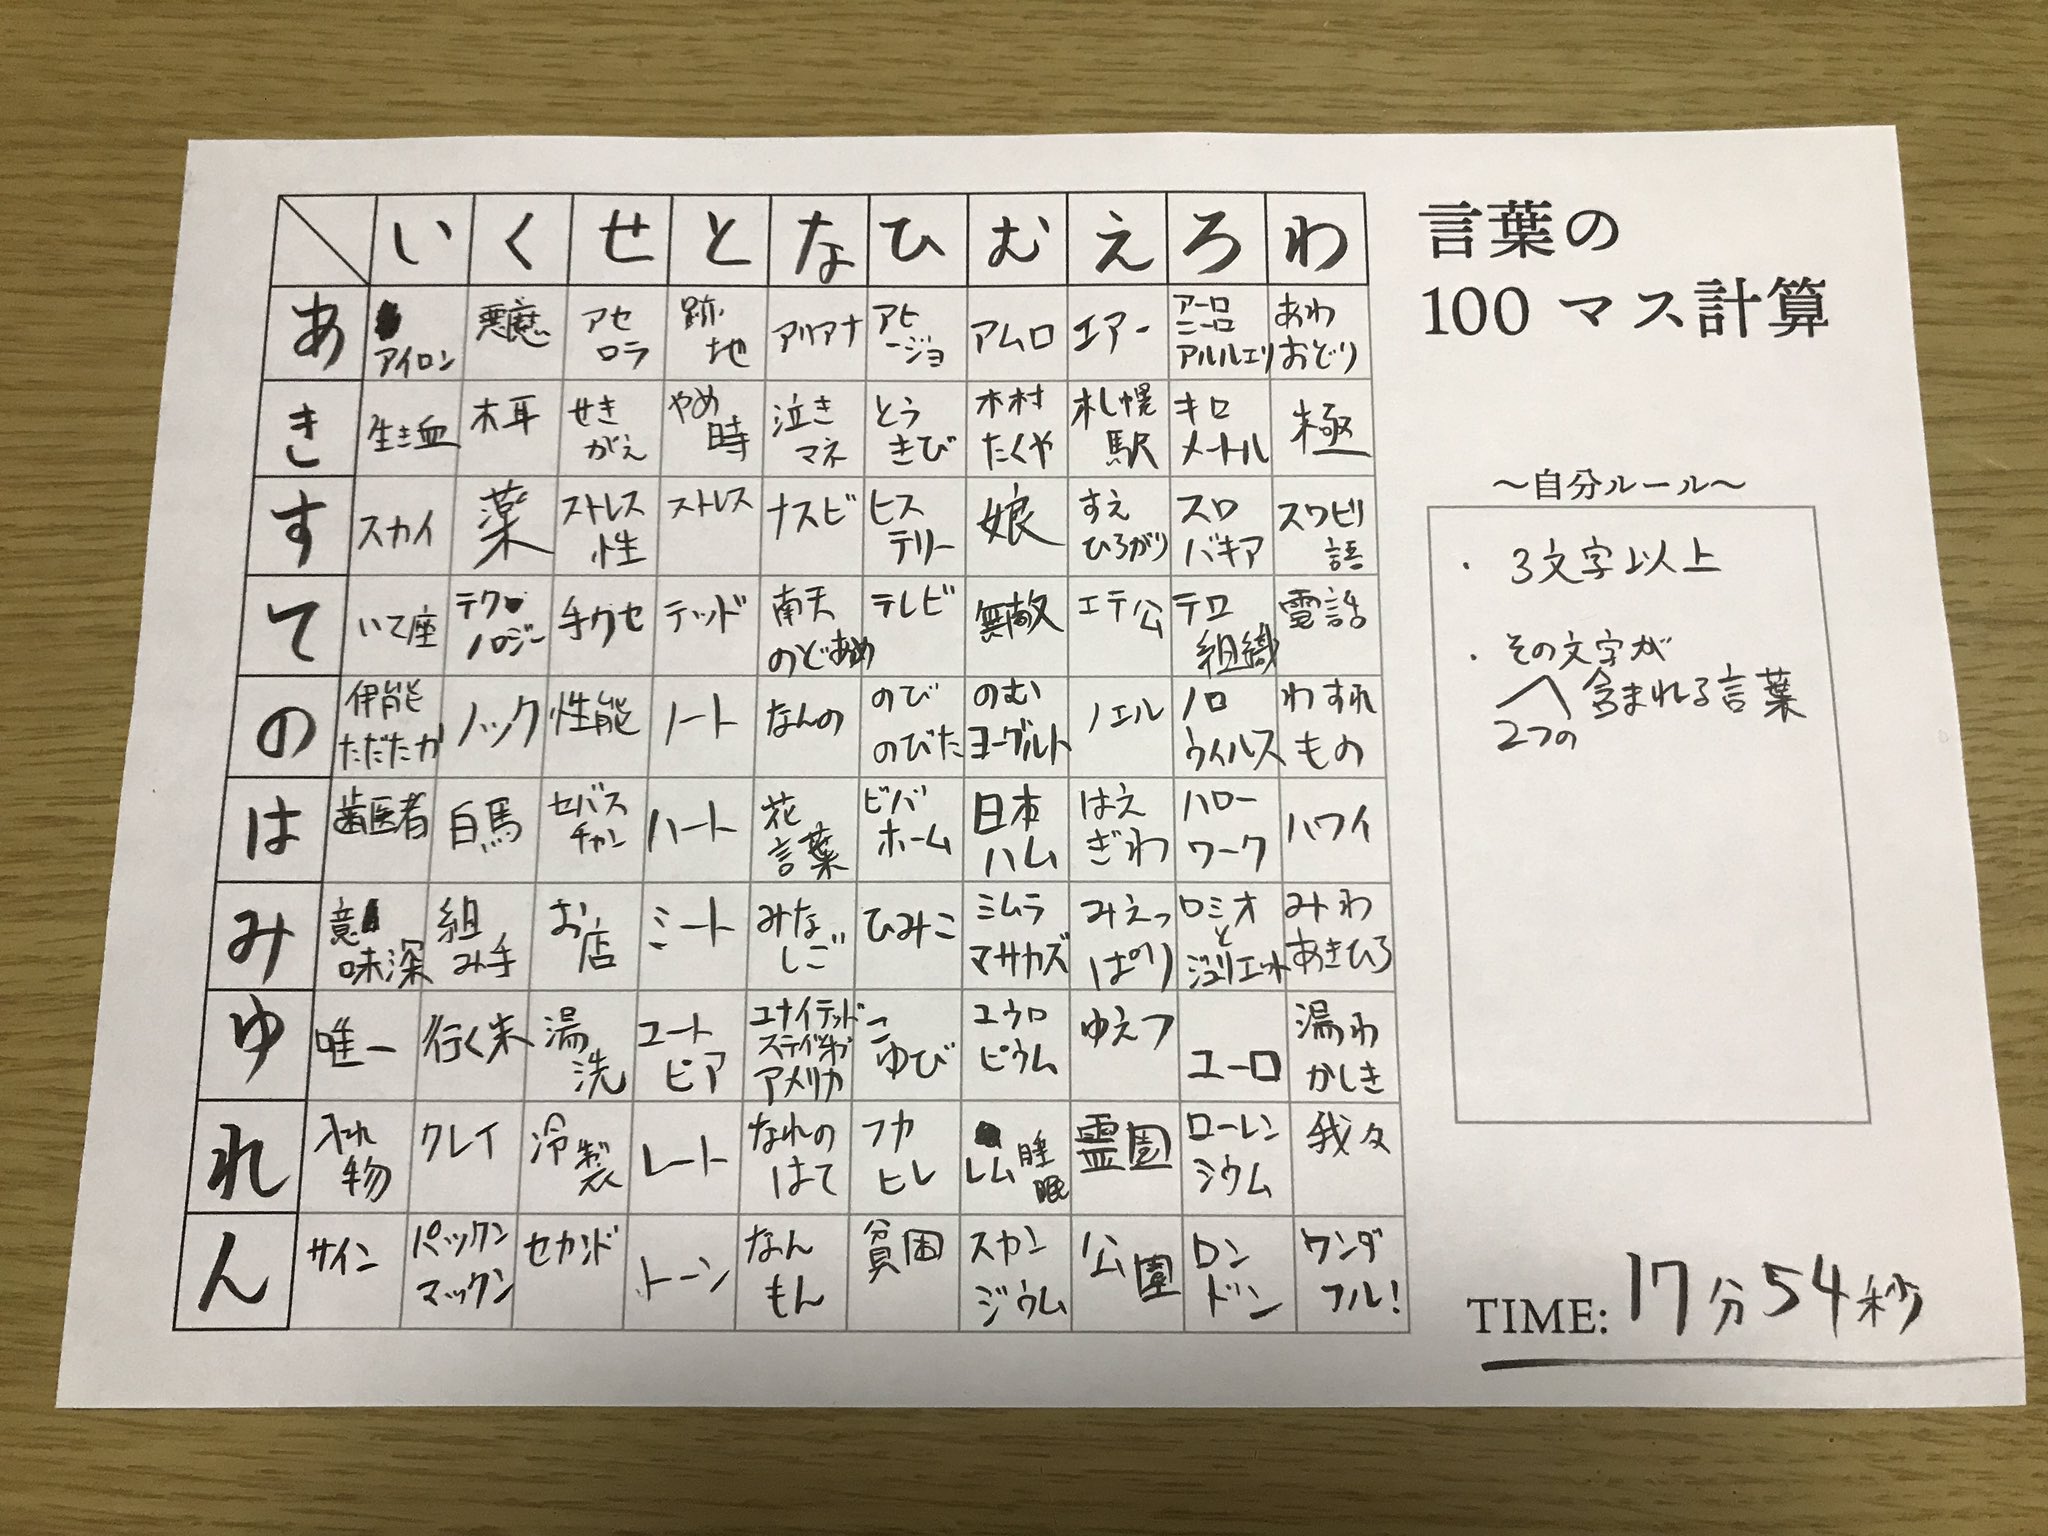 言葉の
100 マス計算
い く せ と な ひ む え ろ わ
あ アイロン 悪魔 アセロラ 跡地 アリアナ アヒージョ アムロ エアー アーロニーロアルルエリ あわおどり
き 生き血 木耳 せきがえ やめ時 泣きマネ とうきび 木村たくや 札幌駅 キロメートル 極
す スカイ 薬 ストレス性 ストレス ナスビ ヒステリー 娘 すえひろがり スロバキア スワヒリ語
て いて座 テクノロジー 手グセ テッド 南天のどあめ テレビ 無敵 エテ公 テロ組織 電話
の 伊能ただたか ノック 性能 ノート なんの のびのびた のむヨーグルト ノエル ノロウィルス わすれもの
は 歯医者 白馬 セバスチャン ハート 花言葉 ビバホーム 日本ハム はえぎわ ハローワーク ハワイ
み 意味深 組み手 お店 ミート みなしご ひみこ ミムラマサカズ みえっぱり ロミオとジュリエット みわあきひろ
ゆ 唯一 行く末 湯洗 ユートピア ユナイテッドステイツオブアメリカ こゆび ユウロピウム ゆえつ ユーロ 湯わかしき
れ 入れ物 クレイ 冷製 レート なれのはて フカヒレ レム睡眠 霊園 ローレンシウム 我々
ん サイン パックンマックン セカンド トーン なんもん 貧困 スカンジウム 公園 ロンドン ワンダフル!
～自分ルール～
・3文字以上
・その文字が
2つの
含まれる言葉
TIME: 17分54秒